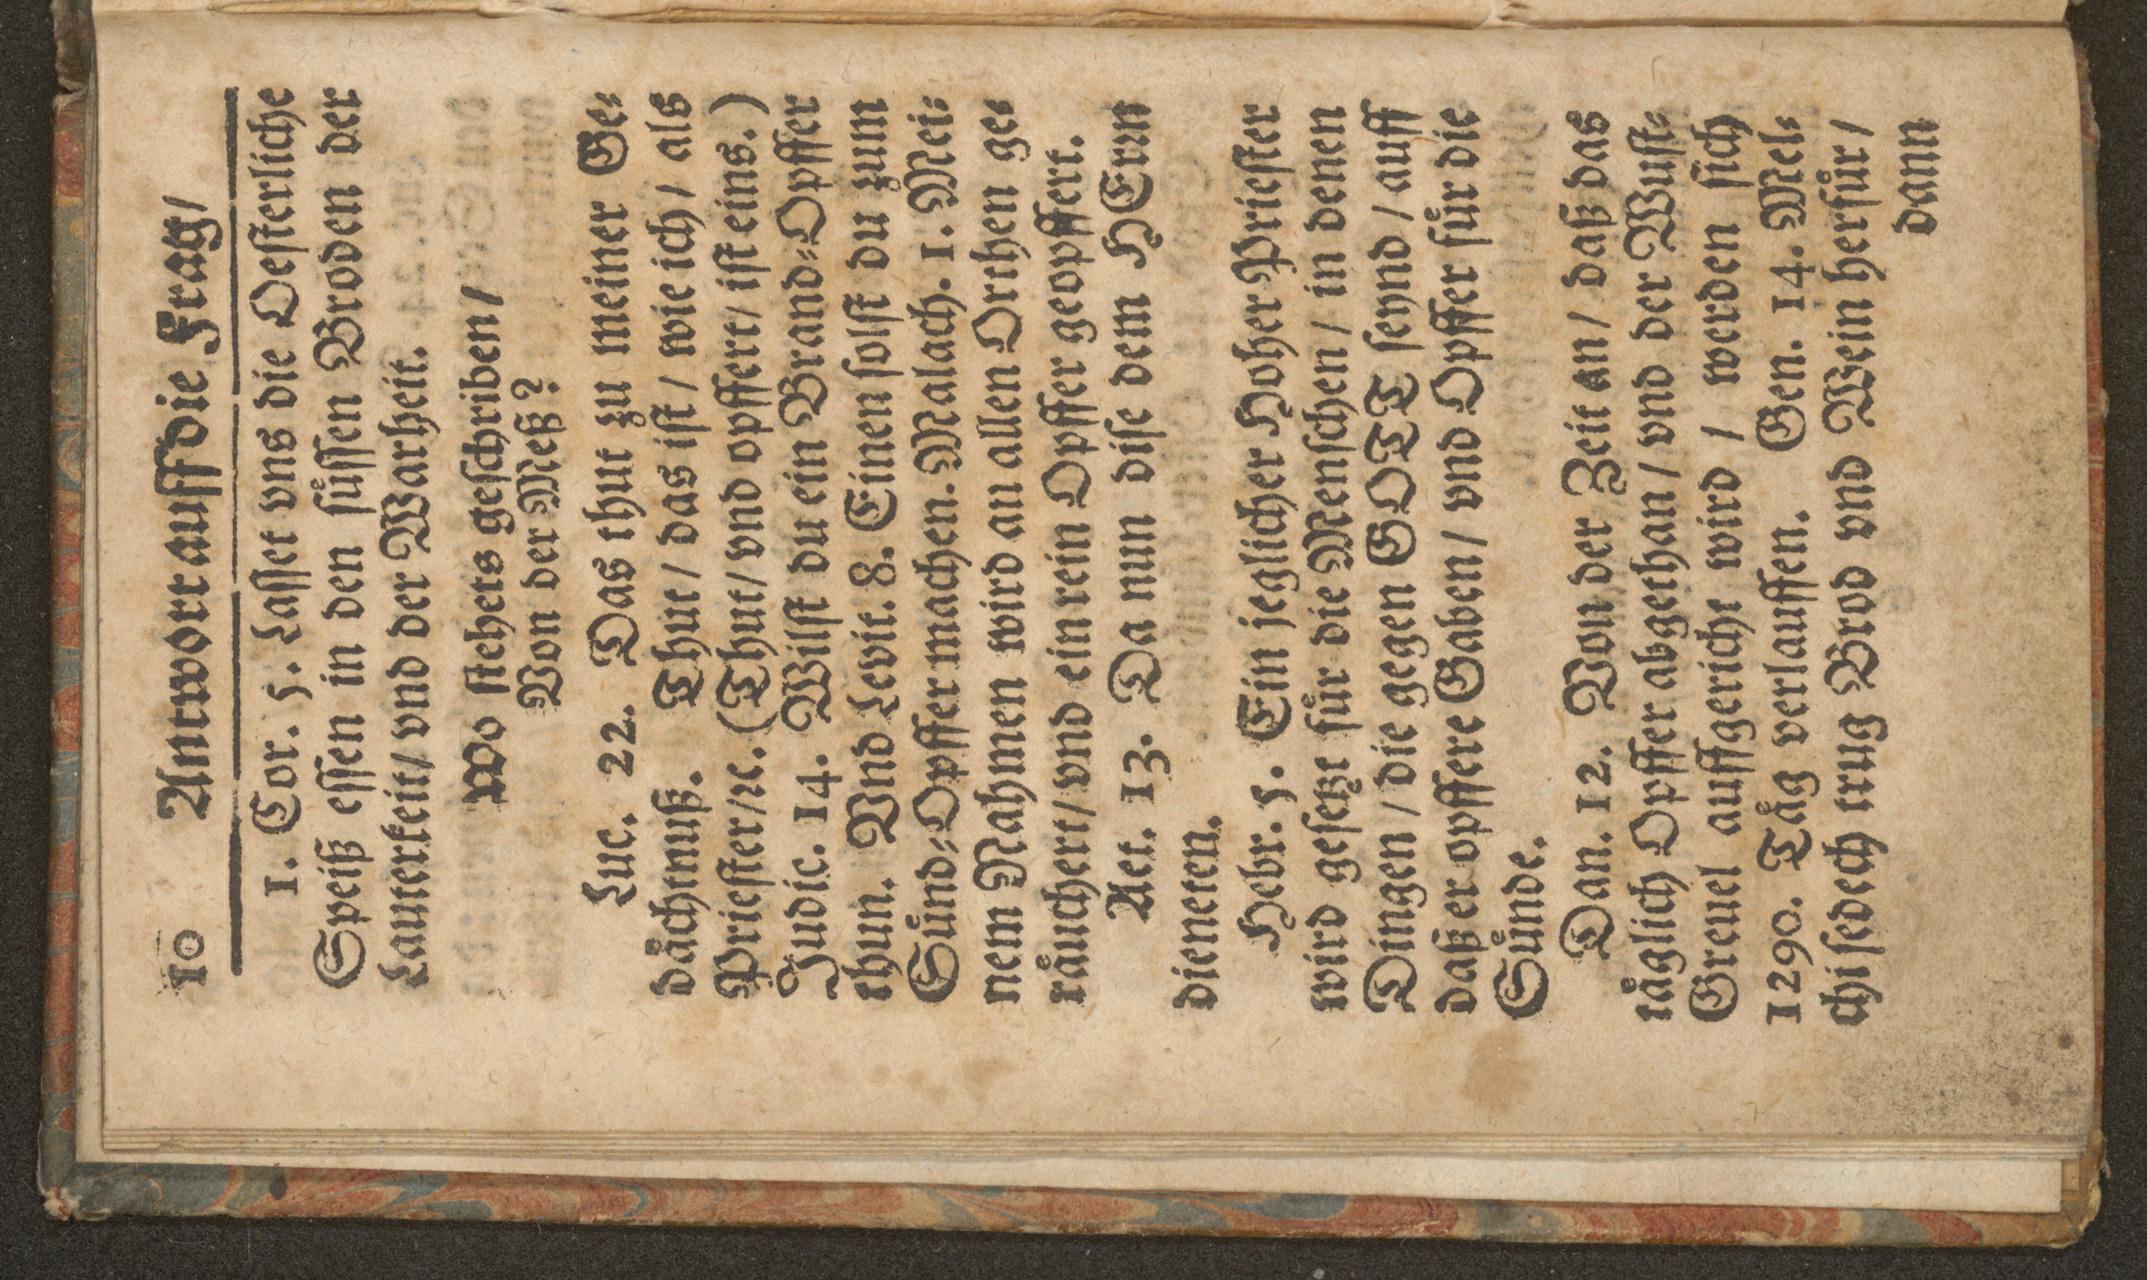 10 Antwort auff die Frag/
1. Cor. 5. Lasset vns die Oesterliche
Speiß essen in den süssen Broden der
Lauterkeit/ vnd der Warheit.
Wo stehets geschriben/
Von der Meß?
Luc. 22. Das thut zu meiner Ge-
dächtnuß. Thut/ das ist/ wie ich/ als
Priester/ ꝛc. (Thut/ vnd opffert/ ist eins.)
Judic. 14. Wilst du ein Brand-Opffer
thun. Vnd Levit. 8. Einen solst du zum
Sünd-Opffer machen. Malach. 1. Mei-
nem Nahmen wird an allen Orthen ge-
räuchert/ vnd ein rein Opffer geopffert.
Act. 13. Da nun dise dem HErrn
dieneten.
Hebr. 5. Ein jeglicher Hoher Priester
wird gesetzt für die Menschen/ in denen
Dingen/ die gegen GOTT seynd/ auff
daß er opffere Gaben/ vnd Opffer für die
Sünde.
Dan. 12. Von der Zeit an/ daß das
täglich Opffer abgethan/ vnd der Wust-
Greuel auffgericht wird/ werden sich
1290. Täg verlauffen. Gen. 14. Mel-
chisedech trug Brod vnd Wein herfür/
dann